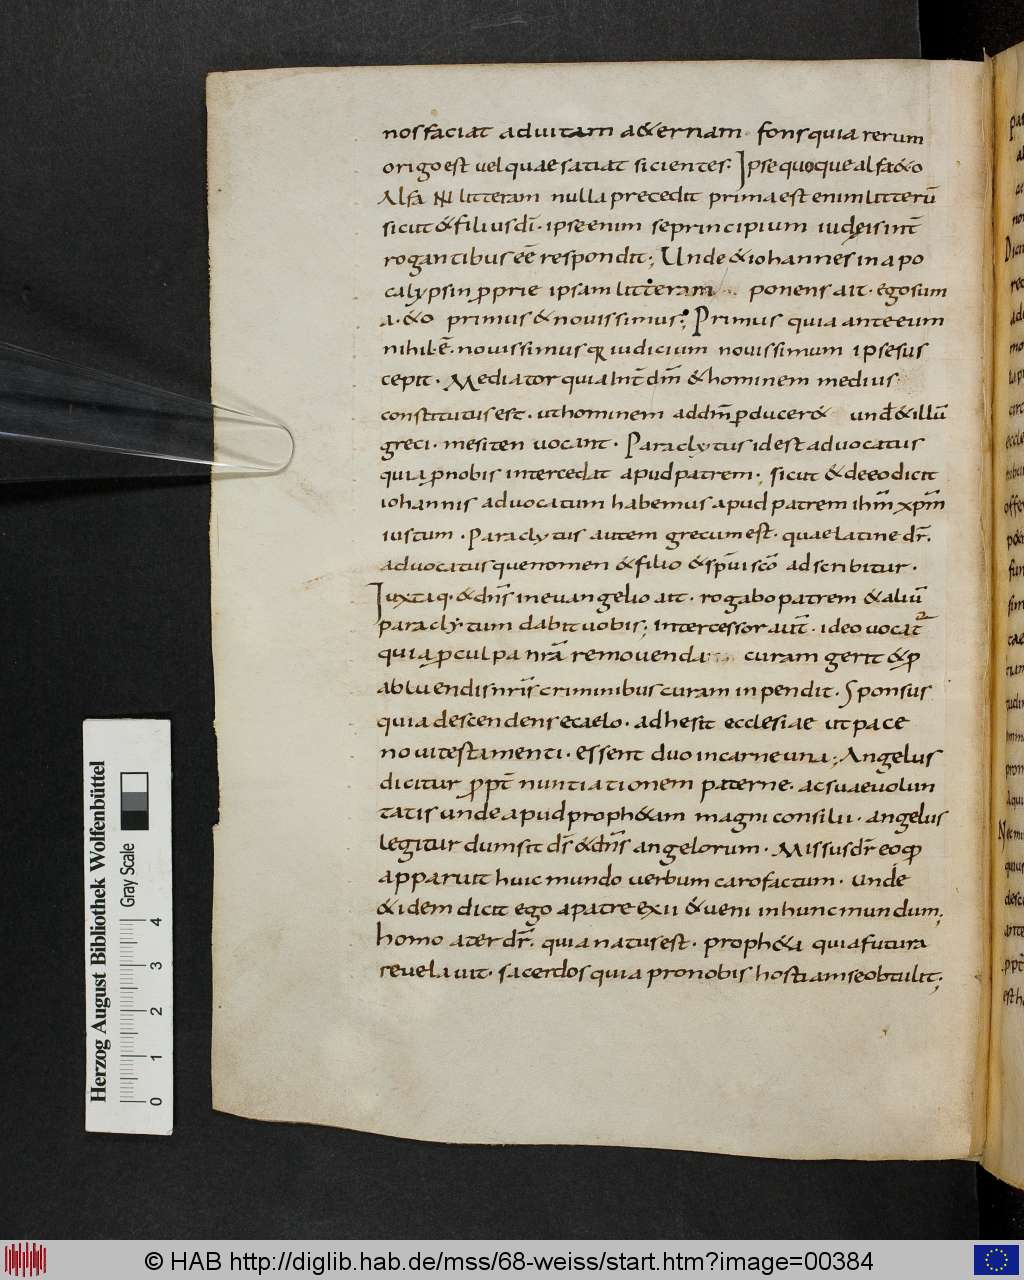 nos faciat ad vitam a&ernam. fons quia rerum
origo est vel quae satiat sicientes: Ipse quoque alfa&o
Alfa litteram nulla precedit prima est enim litterū
sicut & filius dī. ipse enim se principium iudeis int̄
rogantibus eē respondit; Unde & iohannes in apo
calypsin pprie ipsam litteram ponens ait. ego sum
a. & o primus & novissimus; Primus quia ante eum
nihil ē. novissimus iudicium novissimum ipse sus
cepit. Mediator quia int̄ dm̄ & hominem medius
constitutus est. ut hominem ad dm̄ pducer& und& illū
greci. mesiten vocant. Paraclytus id est advocatus
quia p nobis intercedat apud patrem; sicut & de eo dicit
iohannis advocatum habemus apud patrem ihm̄ xpm̄
iustum. Paraclytus autem grecum est. quae latine dr̄.
advocatus que nomen & filio & spūi scō adscribitur.
Iuxta q. & dn̄s in evangelio ait. rogabo patrem & aliū
paraclytum dabit vobis; intercessor aut̄. ideo vocat
quia p culpa nr̄a removenda curam gerit & p
abluendis nr̄is criminibus curam inpendit. Sponsus
quia descendens e caelo. adhesit ecclesiae ut pace
novi testamenti. essent duo in carne una; Angelus
dicitur ppt̄ nuntiationem paterne. ac suae volun
tatis unde apud proph&am magni consilii. angelus
legitur dum sit ds̄ & dn̄s angelorum. Missus dr̄ eo qd
apparuit huic mundo verbum caro factum. unde
& idem dicit ego a patre exii & veni in hunc mundum;
homo at̄er dr̄. quia natus est. proph&a quia futura
revelavit. sacerdos quia pro nobis hostiam se obtulit;
Herzog August Bibliothek Wolfenbüttel
Gray Scale
0 1 2 3 4
© HAB http://diglib.hab.de/mss/68-weiss/start.htm?image=00384